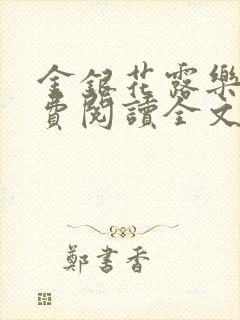 金銀花露樂
費閱讀全文
鄭書香